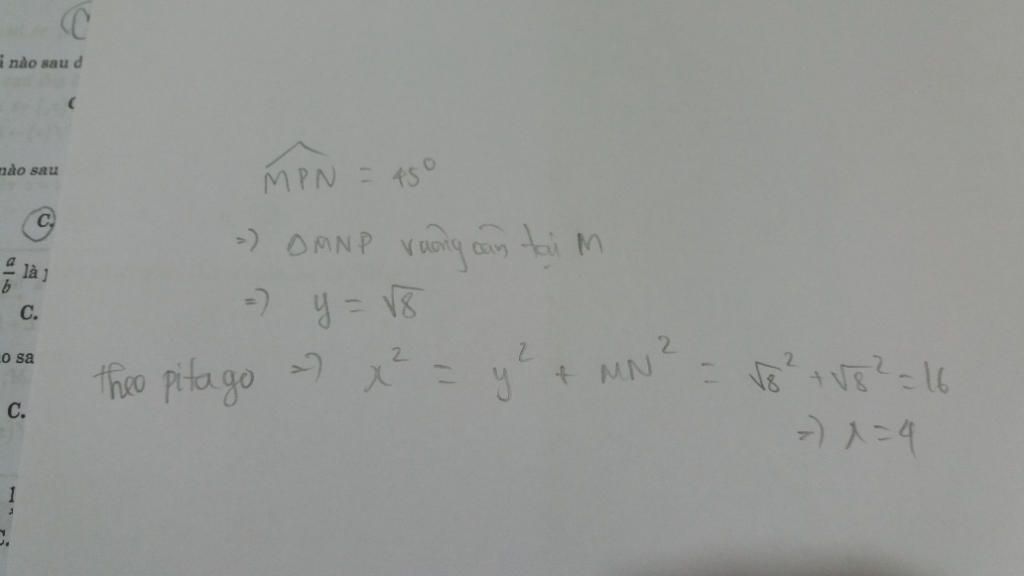 C
ả nào sau d
C
nào sau
C.
a/b là
C.
o sa
C.
1
C.
MPN = 45°
=> ΔMNP vuông cân tại M
=> y = √8
theo pitago => x² = y² + MN² = √8² + √8² = 16
=> x = 4